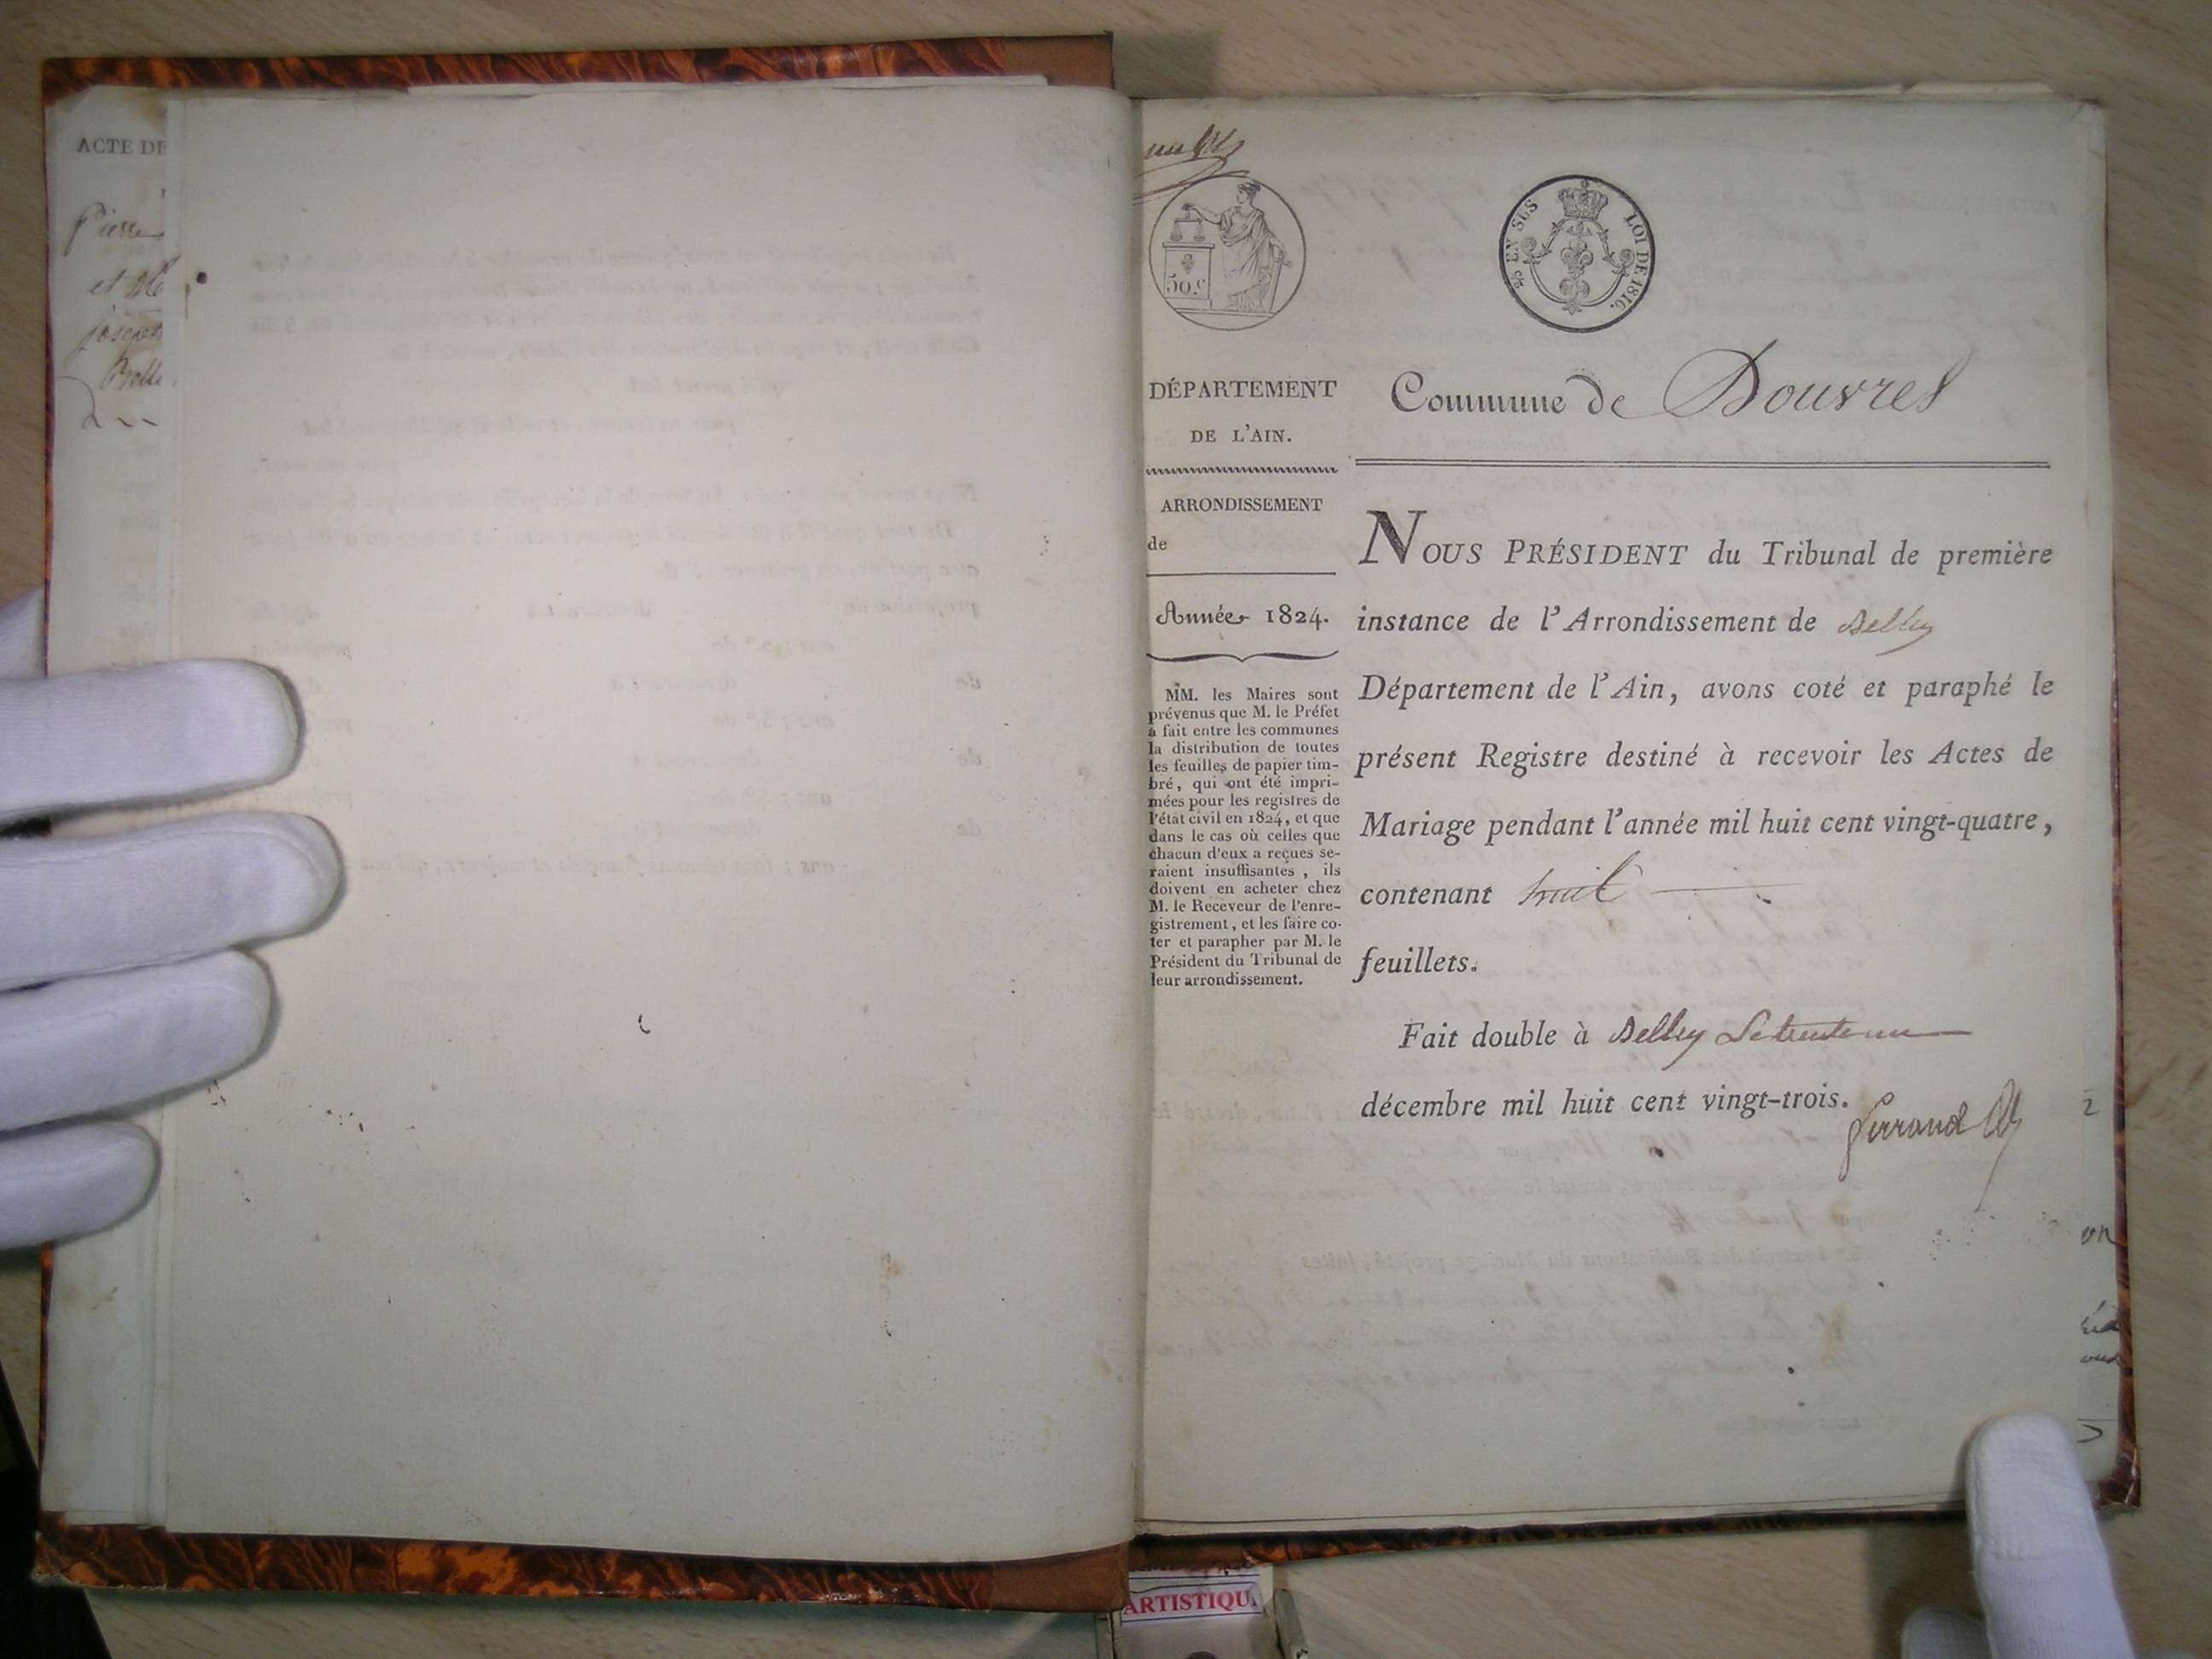 ACTE DE
Pierre
et
joseph
50.c
EN SUS
LOI DE 1816.
DÉPARTEMENT
DE L'AIN.
ARRONDISSEMENT
de
Année 1824.
MM. les Maires sont
prévenus que M. le Préfet
a fait entre les communes
la distribution de toutes
les feuilles de papier tim-
bré, qui ont été impri-
mées pour les registres de
l'état civil en 1824, et que
dans le cas où celles que
chacun d'eux a reçues se-
raient insuffisantes, ils
doivent en acheter chez
M. le Receveur de l'enre-
gistrement, et les faire co-
ter et parapher par M. le
Président du Tribunal de
leur arrondissement.
Commune de Douvres
NOUS PRÉSIDENT du Tribunal de première
instance de l'Arrondissement de Belley
Département de l'Ain, avons coté et paraphé le
présent Registre destiné à recevoir les Actes de
Mariage pendant l'année mil huit cent vingt-quatre,
contenant huit
feuillets.
Fait double à Belley Le trente un
décembre mil huit cent vingt-trois.
2
ARTISTIQU